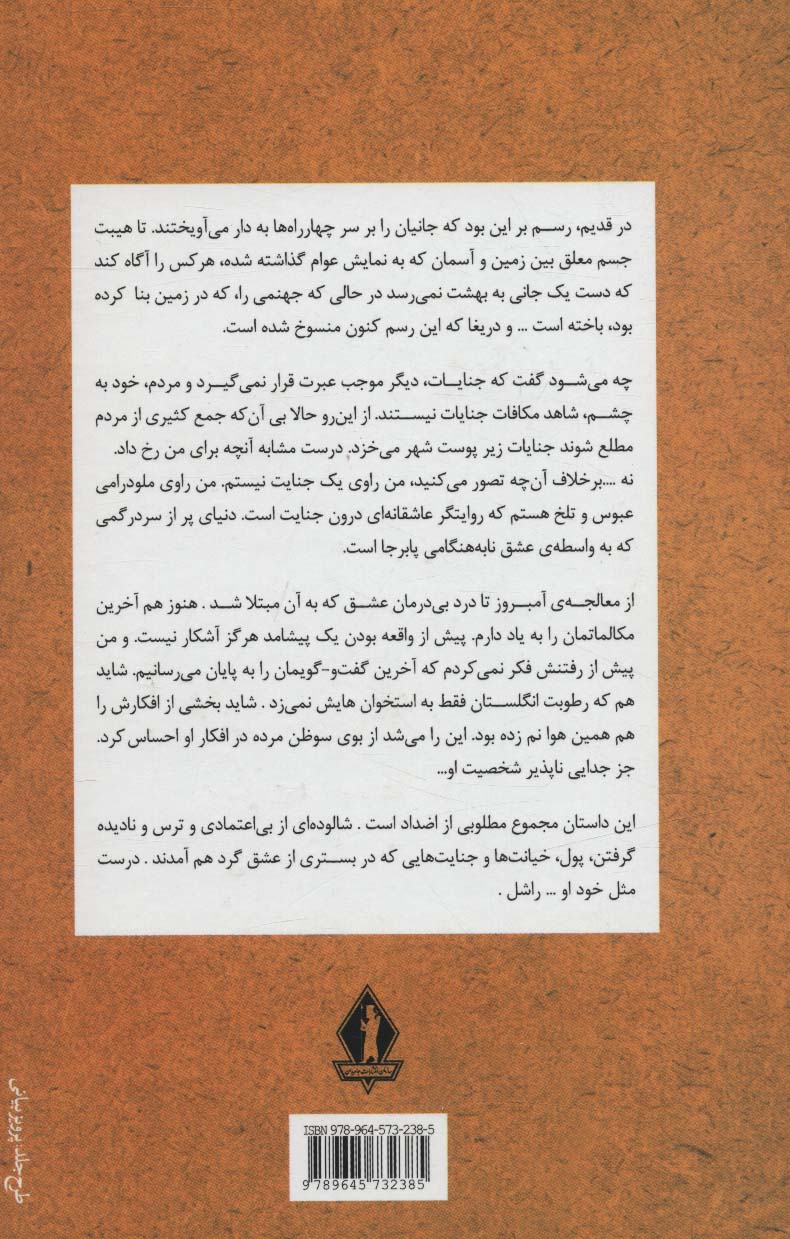 در قدیم، رسم بر این بود که جانیان را بر سر چهارراه‌ها به دار می‌آویختند. تا هیبت
جسم معلق بین زمین و آسمان که به نمایش عوام گذاشته شده، هرکس را آگاه کند
که دست یک جانی به بهشت نمی‌رسد در حالی که جهنمی را، که در زمین بنا کرده
بود، باخته است ... و دریغا که این رسم کنون منسوخ شده است.
چه می‌شود گفت که جنایات، دیگر موجب عبرت قرار نمی‌گیرد و مردم، خود به
چشم، شاهد مکافات جنایات نیستند. از این‌رو حالا بی آن‌که جمع کثیری از مردم
مطلع شوند جنایات زیر پوست شهر می‌خزد. درست مشابه آنچه برای من رخ داد.
نه ....برخلاف آن‌چه تصور می‌کنید، من راوی یک جنایت نیستم. من راوی ملودرامی
عبوس و تلخ هستم که روایتگر عاشقانه‌ای درون جنایت است. دنیای پر از سردرگمی
که به واسطه‌ی عشق نابه‌هنگامی پابرجا است.
از معالجه‌ی آمبروز تا درد بی‌درمان عشق که به آن مبتلا شد . هنوز هم آخرین
مکالماتمان را به یاد دارم. پیش از واقعه بودن یک پیشامد هرگز آشکار نیست. و من
پیش از رفتنش فکر نمی‌کردم که آخرین گفت‌و-گویمان را به پایان می‌رسانیم. شاید
هم که رطوبت انگلستان فقط به استخوان هایش نمی‌زد . شاید بخشی از افکارش را
هم همین هوا نم زده بود. این را می‌شد از بوی سوظن مرده در افکار او احساس کرد.
جز جدایی ناپذیر شخصیت او...
این داستان مجموع مطلوبی از اضداد است . شالوده‌ای از بی‌اعتمادی و ترس و نادیده
گرفتن، پول، خیانت‌ها و جنایت‌هایی که در بستری از عشق گرد هم آمدند . درست
مثل خود او ... راشل .
سازمان انتشارات جاویدان
ISBN 978-964-573-238-5
9 789645 732385
طرح جلد: پرویز بیانی